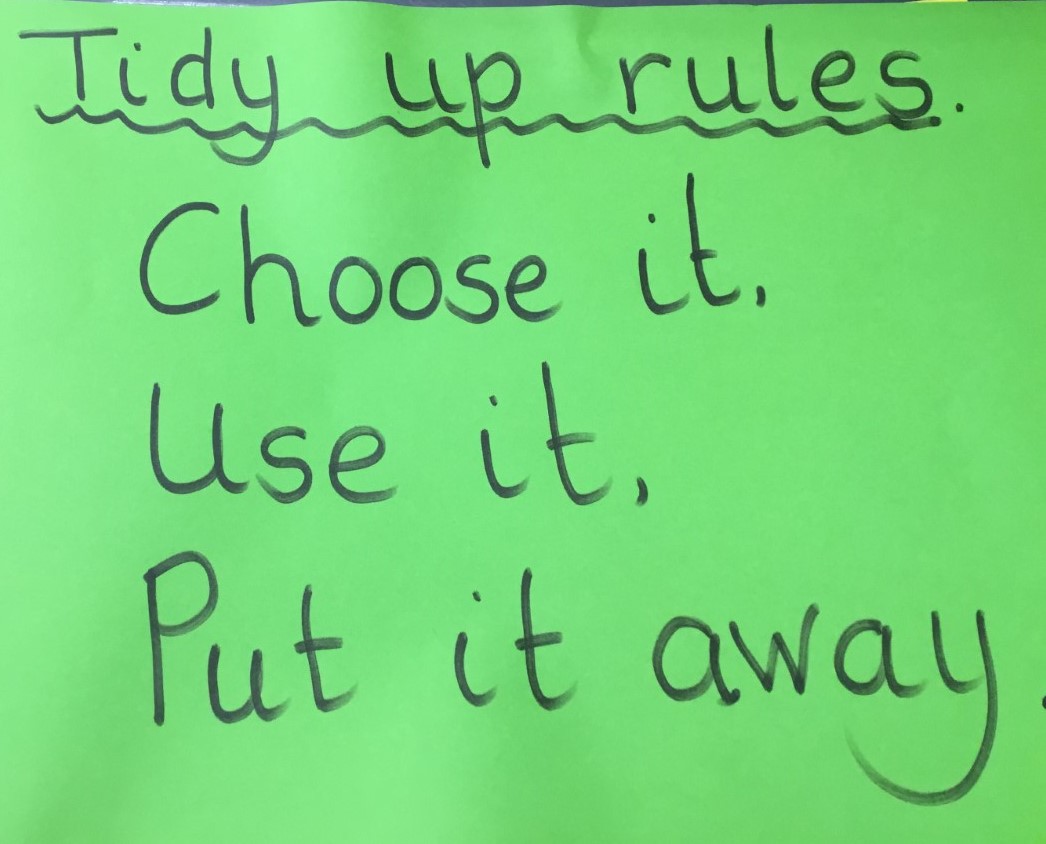 Tidy up rules.
Choose it,
Use it,
Put it away.